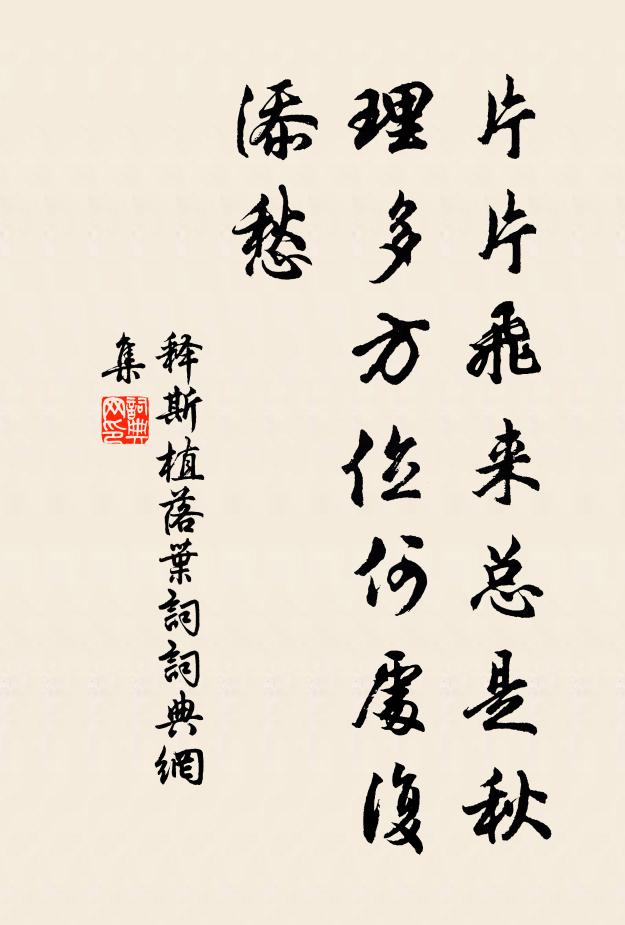 片片飛来总是秋
理多方位何處復
添愁
释斯植落葉詞詞典網
集
詞典
网印